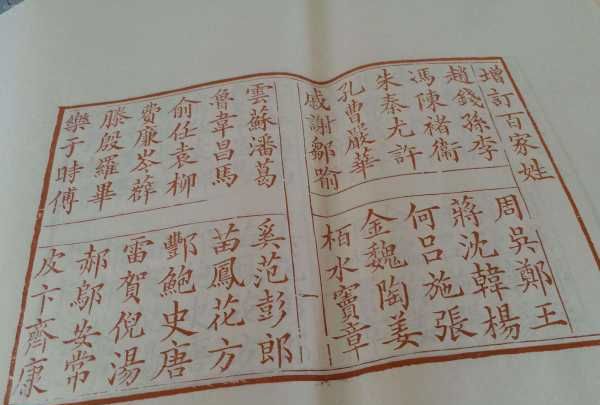 增訂百家姓
趙錢孫李
周吳鄭王
馮陳褚衞
蔣沈韓楊
朱秦尤許
何呂施張
孔曹嚴華
金魏陶姜
戚謝鄒喻
栢水竇章
雲蘇潘葛
奚范彭郎
魯韋昌馬
苗鳳花方
俞任袁柳
酆鮑史唐
費廉岑薛
雷賀倪湯
滕殷羅畢
郝鄔安常
樂于時傅
皮卞齊康